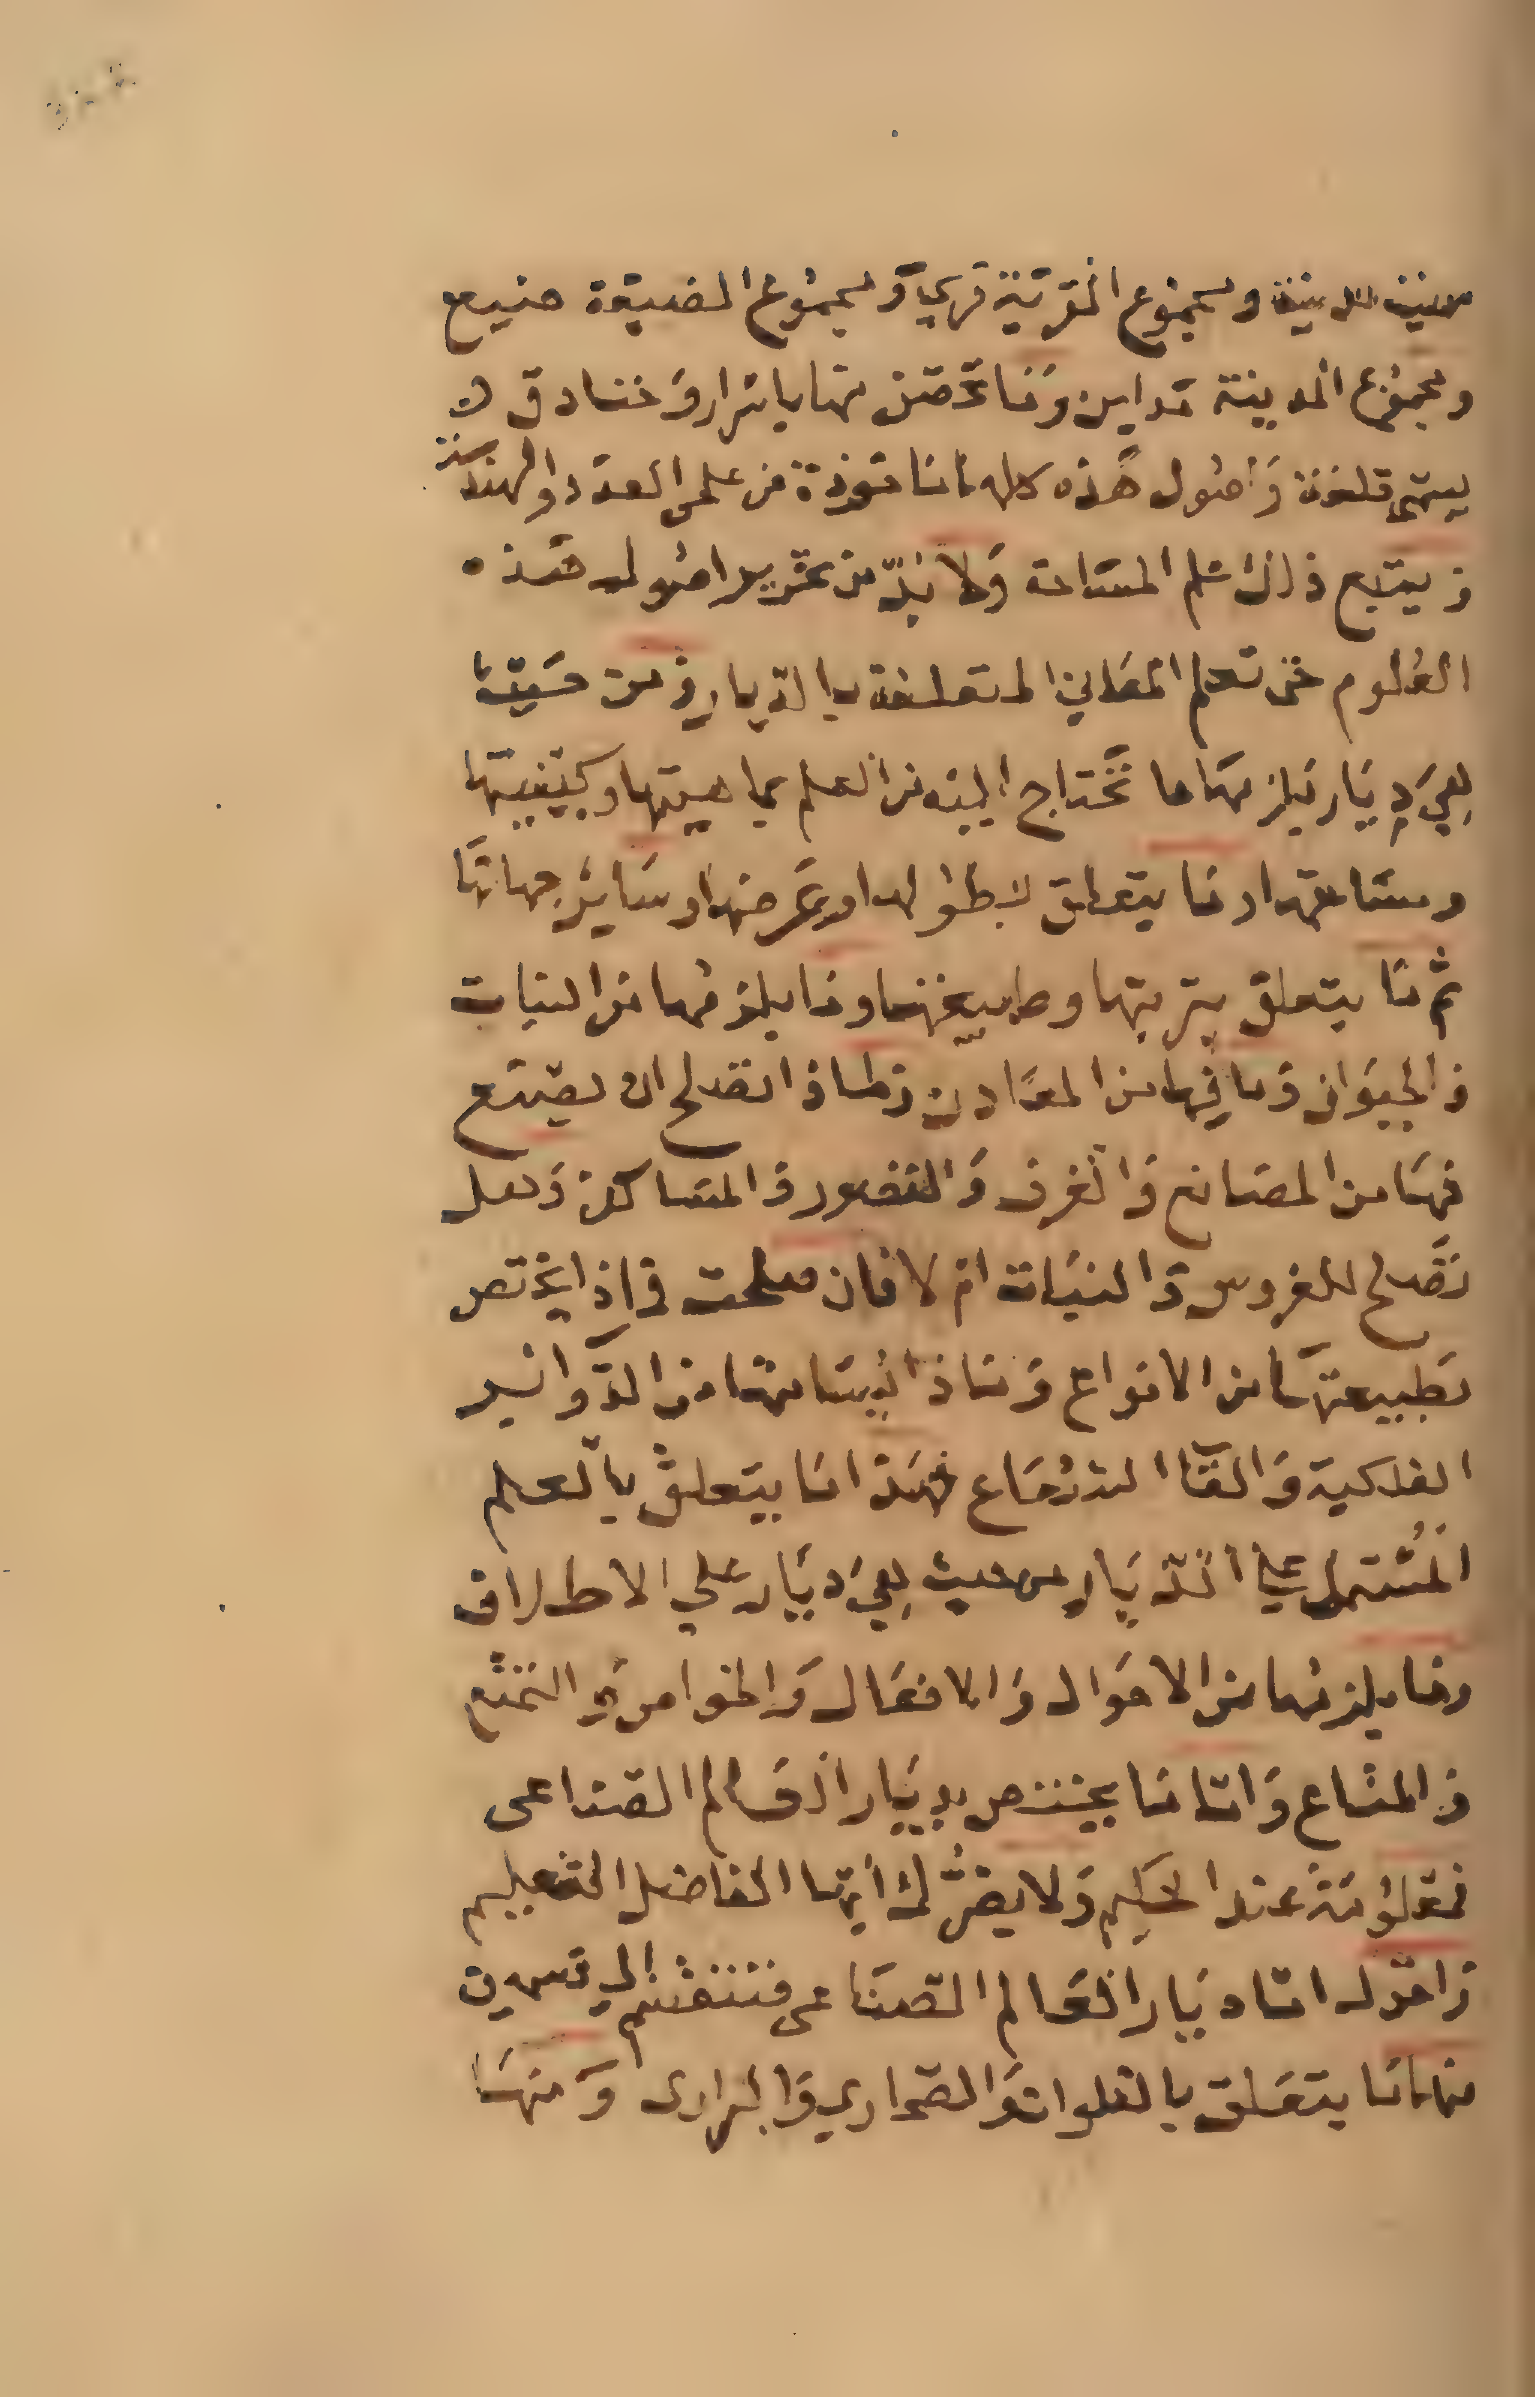 سميت المدينة ومجموع القرية قري ومجموع الضيعة ضيع
ومجموع المدينة مداين وما تحصن منها باسرار وخنادق
يسمي قلعة وأصول هذه كله ماخوذة من علمي العدد والهندسة
ويتبع ذلك علم المساحة ولا بدّ من تحرير اصول هذه
العلوم حتى تعلم المعاني المتعلقة بالديار فمن حيث
هي ديار يلزمها ما تحتاج اليه من العلم بماهيتها وكيفيتها
ومساحتها وما يتعلق بطولها وعرضها وساير جهاتها
ثم ما يتعلق بتربتها وطبيعتها وما يلزمها من النبات
والحيوان وما فيها من المعادن وماذا تصلح ان يصنع
فيها من المصانع والغرف والقصور والمساكن وهل
تصلح للغروس والنبات ام لا فان صلحت فماذا يختص
بطبيعتها من الانواع وماذا يسامتها من الدواير
الفلكية والقا الشعاع فهذا ما يتعلق بالعلم
المشتمل علي الديار من حيث هي ديار علي الاطلاق
وما يلزمها من الاحوال والافعال والخواص والتمتع
والمتاع واما ما يختص بديار العالم الصناعي
فمعلومة عند الحكيم ولا يضرك أيها الفاضل التعليم
واقول اما ديار العالم الصناعي فتنقسم الي قسمين
منها ما يتعلق بالفلوات والصحاري والبراري ومنها